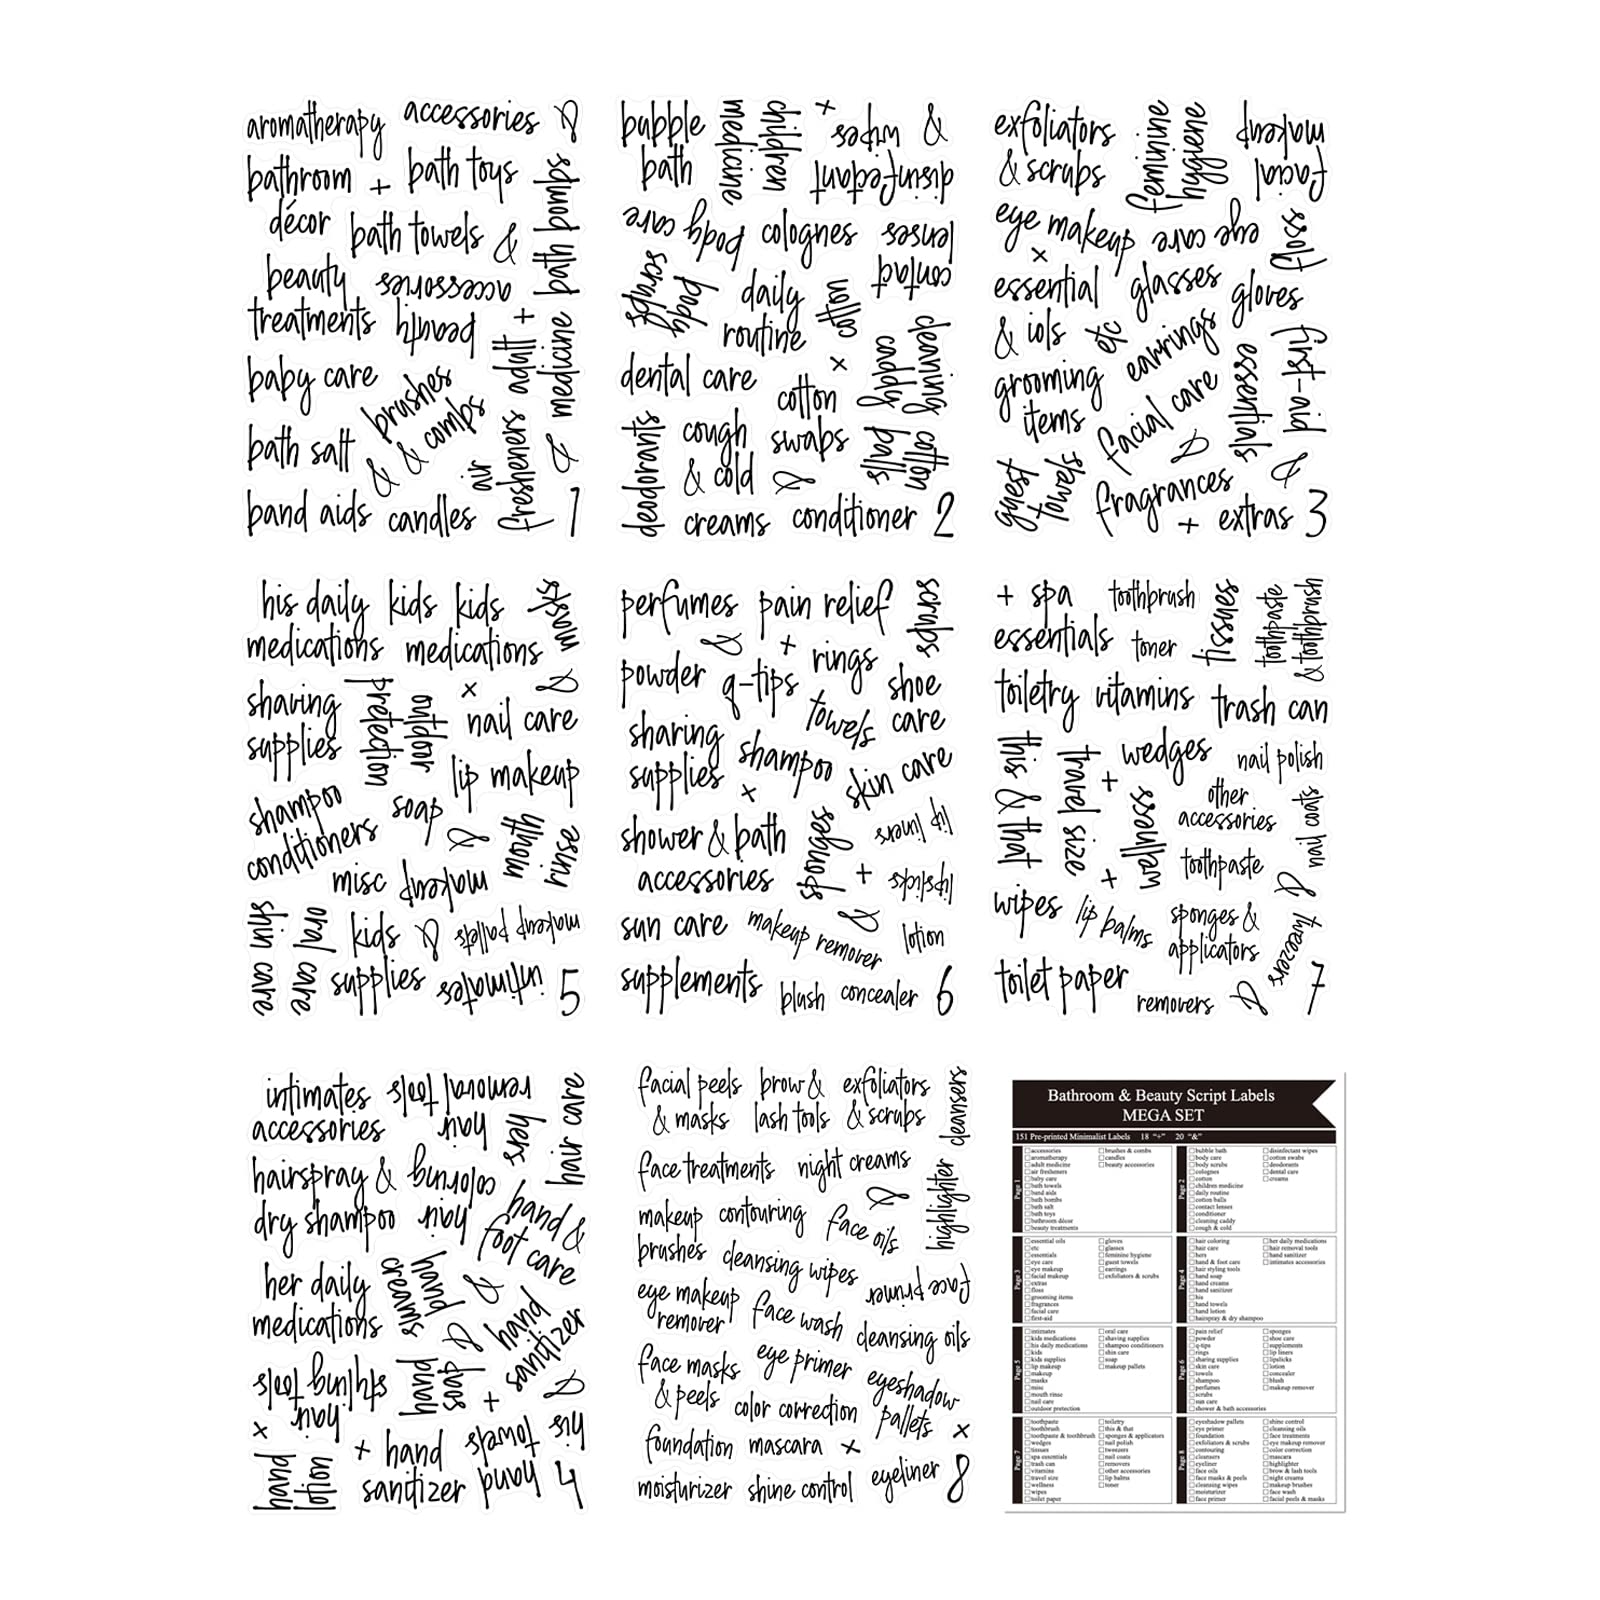 aromatherapy
accessories
&
bathroom
décor
+
bath toys
bath bombs
bath towels
&
beauty
treatments
accessories
beauty
+
adult
medicine
baby care
brushes
& combs
bath salt
&
air
fresheners
&
band aids
candles
1
bubble
bath
children
medicine
+
disinfectant
wipes
&
body care
colognes
contact
lenses
body
scrubs
daily
routine
cotton
cleaning
caddy
dental care
+
cotton
swabs
deodorants
cough
& cold
&
cotton
balls
creams
conditioner
2
exfoliators
& scrubs
feminine
hygiene
facial
makeup
eye makeup
eye care
floss
+
essential
& iols
glasses
gloves
etc
earrings
first-aid
grooming
items
facial care
essentials
&
&
guest
towels
fragrances
+
extras
3
his daily
medications
kids
kids
medications
masks
&
shaving
supplies
outdoor
protection
+
nail care
lip makeup
shampoo
conditioners
soap
&
mouth
rinse
misc
makeup
skin care
oral care
kids
supplies
&
makeup pallets
intimates
5
perfumes
pain relief
scrubs
&
+
powder
q-tips
rings
shoe
care
towels
sharing
supplies
shampoo
skin care
+
shower & bath
accessories
sponges
lip liners
+
lipsticks
sun care
makeup remover
&
lotion
supplements
blush
concealer
6
+
spa
essentials
toothbrush
toner
tissues
toothpaste
& toothbrush
toiletry
vitamins
trash can
this & that
travel size
+
wedges
nail polish
wellness
other
accessories
nail coats
+
toothpaste
&
wipes
lip balms
sponges &
applicators
tweezers
toilet paper
removers
&
7
intimates
accessories
hair
removal tools
hers
hair care
hairspray &
dry shampoo
hair
coloring
hand &
foot care
her daily
medications
hand
creams
&
hand
sanitizer
&
hair
styling tools
hand
soap
+
&
+
hand
lotion
+
hand
sanitizer
his
hand towels
4
facial peels
& masks
brow &
lash tools
exfoliators
& scrubs
cleansers
face treatments
night creams
highlighter
&
makeup
brushes
contouring
face oils
cleansing wipes
face primer
eye makeup
remover
face wash
cleansing oils
face masks
& peels
eye primer
eyeshadow
pallets
color correction
+
foundation
mascara
+
moisturizer
shine control
eyeliner
8
Bathroom & Beauty Script Labels
MEGA SET
151 Pre-printed Minimalist Labels 18 "+" 20 "&"
Page 1
accessories
aromatherapy
adult medicine
air fresheners
baby care
bath towels
band aids
bath bombs
bath salt
bath toys
bathroom décor
beauty treatments
brushes & combs
candles
beauty accessories
Page 2
bubble bath
body care
body scrubs
colognes
cotton
children medicine
daily routine
cotton balls
contact lenses
conditioner
cleaning caddy
cough & cold
disinfectant wipes
cotton swabs
deodorants
dental care
creams
Page 3
essential oils
etc
essentials
eye care
eye makeup
facial makeup
extras
floss
grooming items
fragrances
facial care
first-aid
gloves
glasses
feminine hygiene
guest towels
earrings
exfoliators & scrubs
Page 4
hair coloring
hair care
hers
hand & foot care
hair styling tools
hand soap
hand creams
hand sanitizer
his
hand towels
hand lotion
hairspray & dry shampoo
her daily medications
hair removal tools
hand sanitizer
intimates accessories
Page 5
intimates
kids medications
his daily medications
kids
kids supplies
lip makeup
makeup
masks
misc
mouth rinse
nail care
outdoor protection
oral care
shaving supplies
shampoo conditioners
skin care
soap
makeup pallets
Page 6
pain relief
powder
q-tips
rings
sharing supplies
skin care
towels
shampoo
perfumes
scrubs
sun care
shower & bath accessories
sponges
shoe care
supplements
lip liners
lipsticks
lotion
concealer
blush
makeup remover
Page 7
toothpaste
toothbrush
toothpaste & toothbrush
wedges
tissues
spa essentials
trash can
vitamins
travel size
wellness
wipes
toilet paper
toiletry
this & that
sponges & applicators
nail polish
tweezers
nail coats
removers
other accessories
lip balms
toner
Page 8
eyeshadow pallets
eye primer
foundation
exfoliators & scrubs
contouring
cleansers
eyeliner
face oils
face masks & peels
cleansing wipes
moisturizer
face primer
shine control
cleansing oils
face treatments
eye makeup remover
color correction
mascara
highlighter
brow & lash tools
night creams
makeup brushes
face wash
facial peels & masks